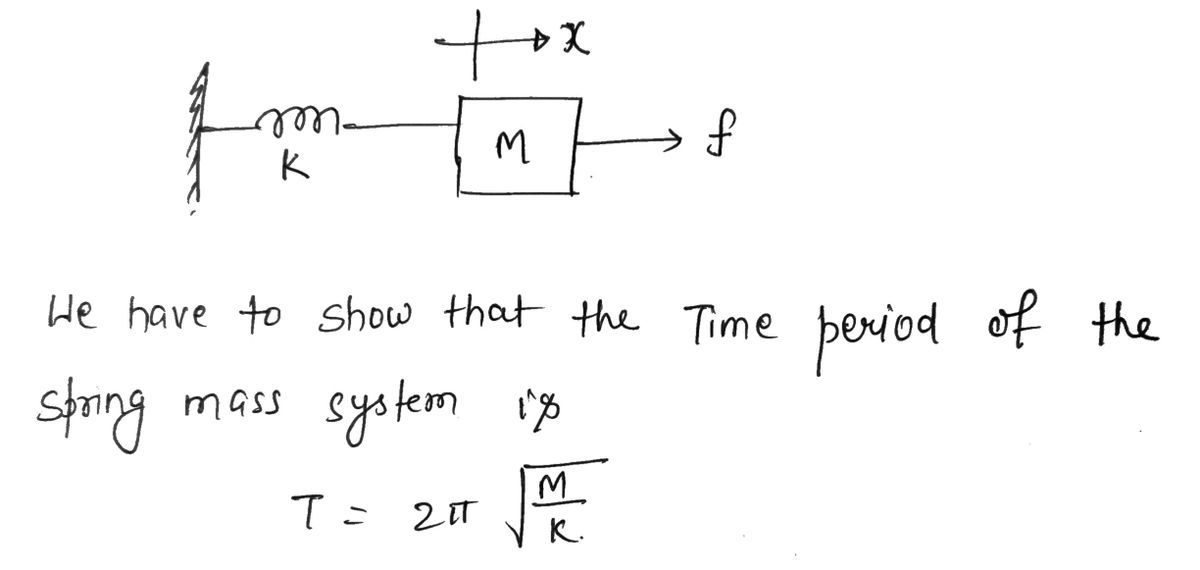 x
M
f
K
We have to show that the Time period of the
spring mass system is
T = 2π √(M/K).